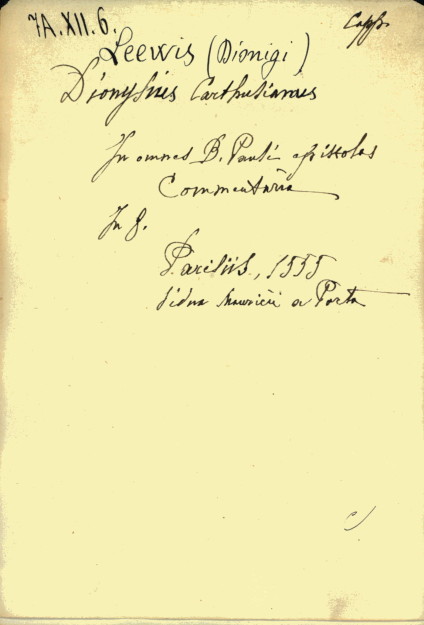 7A.XII.6.
Capp.
Leewis (Dionigi)
Dionysius Carthusianus
In omnes B. Pauli epistolas
Commentaria
In 8.
Parisiis, 1555
Vidua Mauricii a Porta